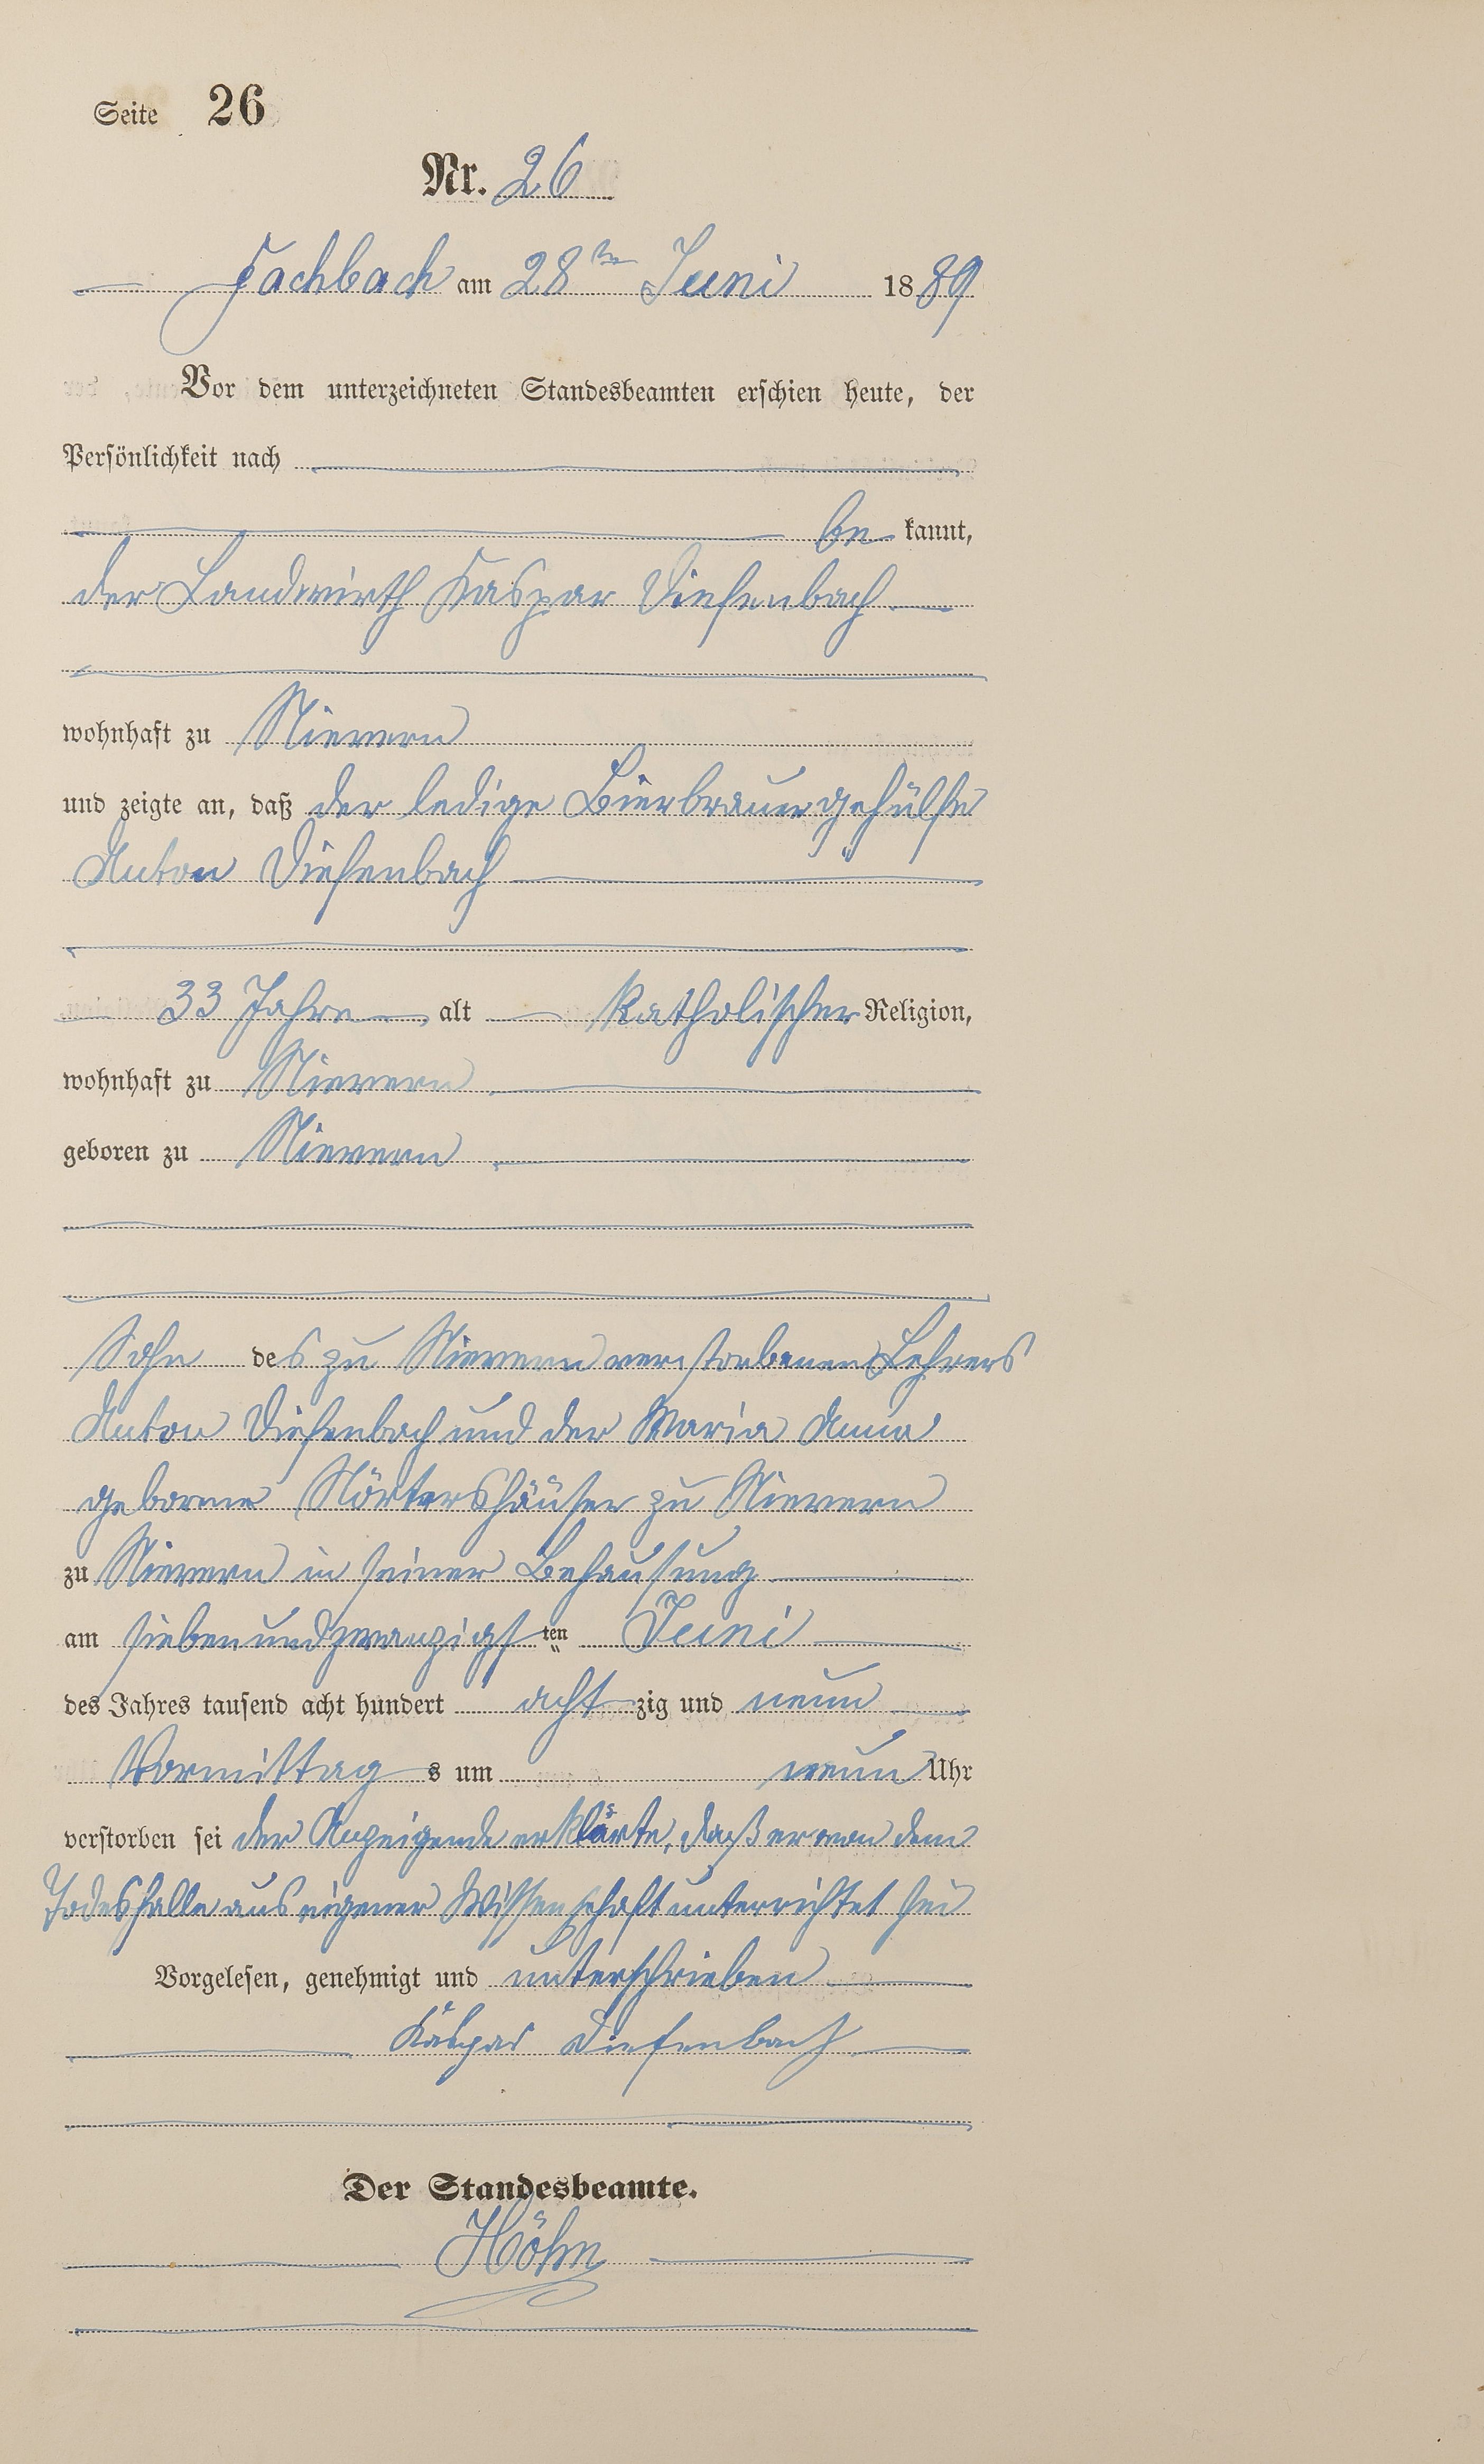 Seite 26
Nr. 26
Fachbach am 28ten Juni 1889
Vor dem unterzeichneten Standesbeamten erschien heute, der
Persönlichkeit nach
be kannt,
der Landwirth Kaspar Diefenbach
wohnhaft zu Nievern
und zeigte an, daß der ledige Bierbrauergehülfe
Anton Diefenbach
33 Jahre alt katholischer Religion,
wohnhaft zu Nievern
geboren zu Nievern
Sohn des zu Nievern verstorbenen Lehrers
Anton Diefenbach und der Maria Anna
geborene Nörtershäuser zu Nievern
zu Nievern in seiner Behausung
am siebenundzwanzigsten Juni
des Jahres tausend acht hundert achtzig und neun
Vormittags um neun Uhr
verstorben sei der Anzeigende erklärte, daß er von dem
Todesfalle aus eigener Wissenschaft unterrichtet sei
Vorgelesen, genehmigt und unterschrieben
Kaspar Diefenbach
Der Standesbeamte.
Höhn